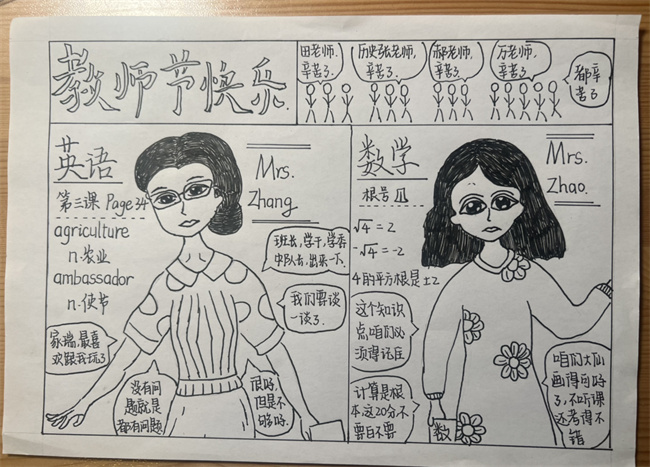 教师节快乐
田老师,
辛苦了.
历史张老师,
辛苦了.
郝老师,
辛苦了.
万老师,
辛苦了.
都辛
苦了
英语
Mrs.
Zhang
第三课 Page34
agriculture
n.农业
ambassador
n.使节
班长,学干,学委
中队长,出来一下.
我们要谈
一谈了.
家瑞,最喜
欢跟我玩了
没有问
题就是
都有问题
很好,
但是不
够好.
数学
Mrs.
Zhao.
根号
√4 = 2
-√4 = -2
4的平方根是±2
这个知识
点咱们必
须得记住
计算是根
本这20分不
要白不要
数
咱们大仙
画得可好
了,不听课
还考得不
错